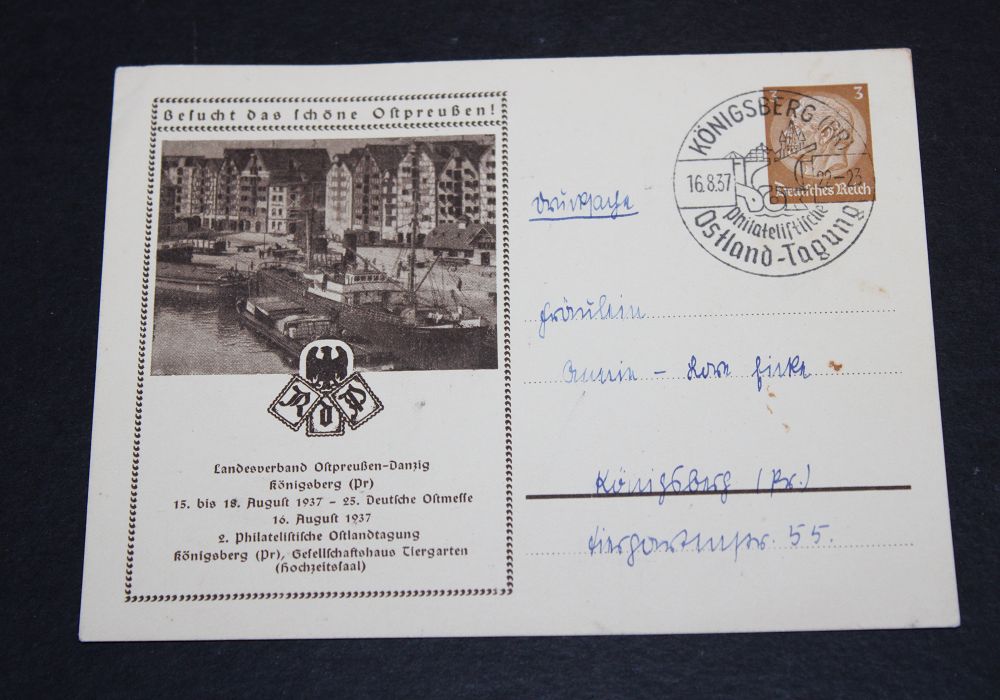 Besucht das schöne Ostpreußen!
RdP
Landesverband Ostpreußen-Danzig
Königsberg (Pr)
15. bis 18. August 1937 - 25. Deutsche Ostmesse
16. August 1937
2. Philatelistische Ostlandtagung
Königsberg (Pr), Gesellschaftshaus Tiergarten
(Hochzeitssaal)
Drucksache
KÖNIGSBERG (PR)
16.8.37
22-23
Philatelistische
Ostland-Tagung
3 3
Deutsches Reich
Fräulein
Annie - Lore Ficke
Königsberg (Pr.)
Tiergartenstr. 55.